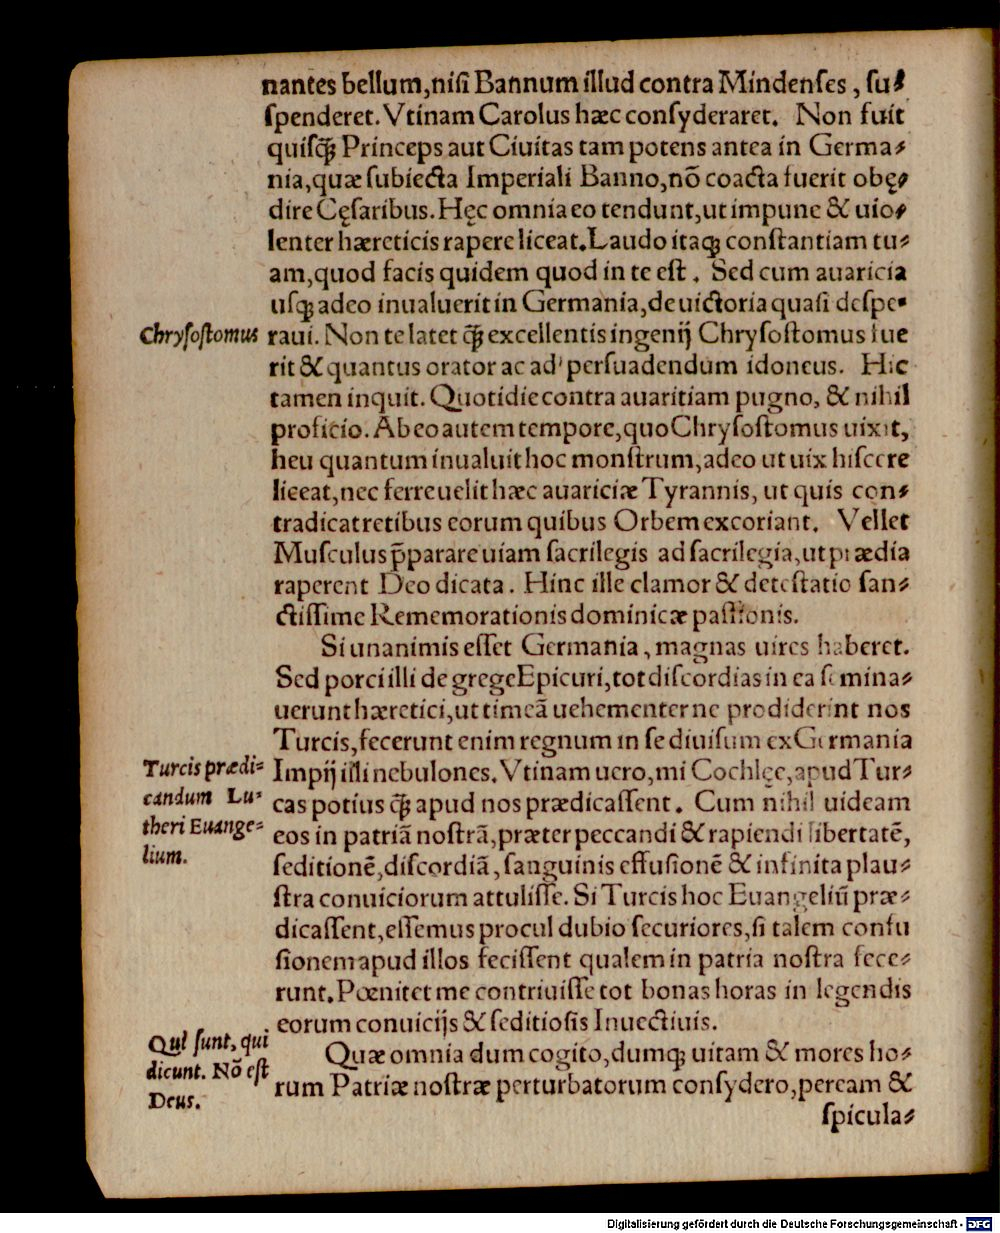 nantes bellum, nisi Bannum illud contra Mindenses, su⸗
spenderet. Vtinam Carolus hæc consyderaret. Non fuit
quisq̃ Princeps aut Ciuitas tam potens antea in Germa⸗
nia, quæ subiecta Imperiali Banno, nõ coacta fuerit obę⸗
dire Cęsaribus. Hęc omnia eo tendunt, ut impune & uio⸗
lenter hæreticis rapere liceat. Laudo itaq; constantiam tu⸗
am, quod facis quidem quod in te est. Sed cum auaricia
usq; adeo inualuerit in Germania, de uictoria quasi despe⸗
Chrysostomus raui. Non te latet q̃ excellentis ingenij Chrysostomus fue
rit & quantus orator ac ad persuadendum idoneus. Hic
tamen inquit. Quotidie contra auaritiam pugno, & nihil
proficio. Ab eo autem tempore, quo Chrysostomus uixit,
heu quantum inualuit hoc monstrum, adeo ut uix hiscere
liceat, nec ferre uelit hæc auariciæ Tyrannis, ut quis con⸗
tradicat retibus eorum quibus Orbem excoriant. Vellet
Musculus p̃parare uiam sacrilegis ad sacrilegia, ut prædia
raperent Deo dicata. Hinc ille clamor & detestatio san⸗
ctissime Rememorationis dominicæ passionis.
Si unanimis esset Germania, magnas uires haberet.
Sed porci illi de grege Epicuri, tot discordias in ea semina⸗
uerunt hæretici, ut timeã uehementer ne prodiderint nos
Turcis, fecerunt enim regnum in se diuisum ex Germania
Turcis prædi⸗ Impij illi nebulones. Vtinam uero, mi Cochlęe, apud Tur⸗
candum Lu⸗ cas potius q̃ apud nos prædicassent. Cum nihil uideam
theri Euange⸗ eos in patriã nostrã, præter peccandi & rapiendi libertatẽ,
lium. seditionẽ, discordiã, sanguinis effusionẽ & infinita plau⸗
stra conuiciorum attulisse. Si Turcis hoc Euangeliũ præ⸗
dicassent, essemus procul dubio securiores, si talem confu
sionem apud illos fecissent qualem in patria nostra fece⸗
runt. Pœnitet me contriuisse tot bonas horas in legendis
eorum conuicijs & seditiosis Inuectiuis.
Qui sunt, qui Quæ omnia dum cogito, dumq; uitam & mores ho⸗
dicunt. Nõ est rum Patriæ nostræ perturbatorum consydero, peream &
Deus. spicula⸗
Digitalisierung gefördert durch die Deutsche Forschungsgemeinschaft - DFG